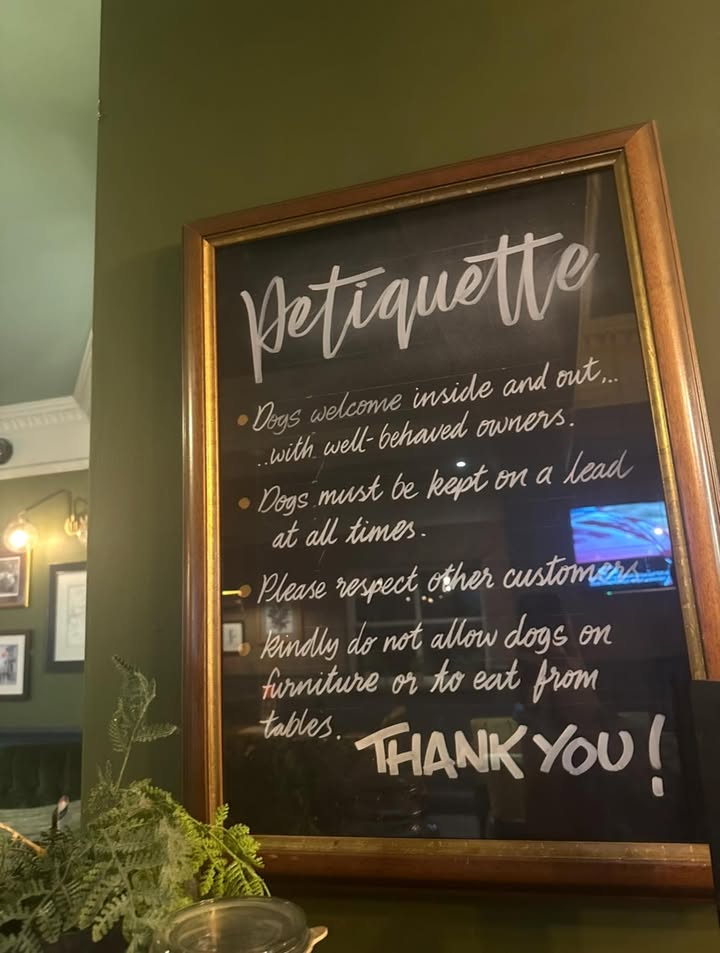 Petiquette
• Dogs welcome inside and out...
...with well-behaved owners.
• Dogs must be kept on a lead
at all times.
• Please respect other customers.
• kindly do not allow dogs on
furniture or to eat from
tables.
THANK YOU!